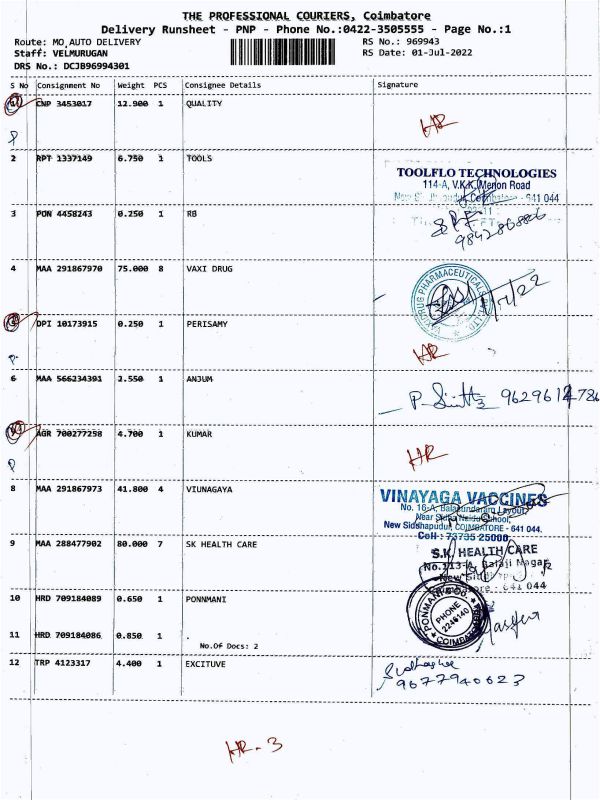 THE PROFESSIONAL COURIERS, Coimbatore
Delivery Runsheet - PNP - Phone No.:0422-3505555 - Page No.:1
Route: MO,AUTO DELIVERY RS No.: 969943
Staff: VELMURUGAN RS Date: 01-Jul-2022
DRS No.: DCJB96994301
S No Consignment No Weight PCS Consignee Details Signature
CNP 3453017 12.900 1 QUALITY
HR
P
2 RPT 1337149 6.750 1 TOOLS
TOOLFLO TECHNOLOGIES
114-A, V.K.K. Menon Road
Coimbatore - 641 044
3 PON 4458243 0.250 1 RB
9842868806
4 MAA 291867970 75.000 8 VAXI DRUG
VAXIDRUG PHARMACEUTICALS LTD.
DPI 10173915 0.250 1 PERISAMY
HR
P
6 MAA 566234391 2.550 1 ANJUM
AGR 700277258 4.700 1 KUMAR
HR
P
8 MAA 291867973 41.800 4 VIUNAGAYA
VINAYAGA VACCINES
No. 16-A, Balasundaram Layout,
Near Sidha Naidu School,
New Sidhapudur, COIMBATORE - 641 044.
Cell : 73735 25000
9 MAA 288477902 80.000 7 SK HEALTH CARE
S.K. HEALTH CARE
No.113-A, Balaji Nagar
641 044
10 HRD 709184089 0.650 1 PONNMANI
PONMANI & CO
PHONE
2246140
COIMBATORE
11 HRD 709184086 0.850 1 .
No.Of Docs: 2
12 TRP 4123317 4.400 1 EXCITUVE
9677940623
HR - 3